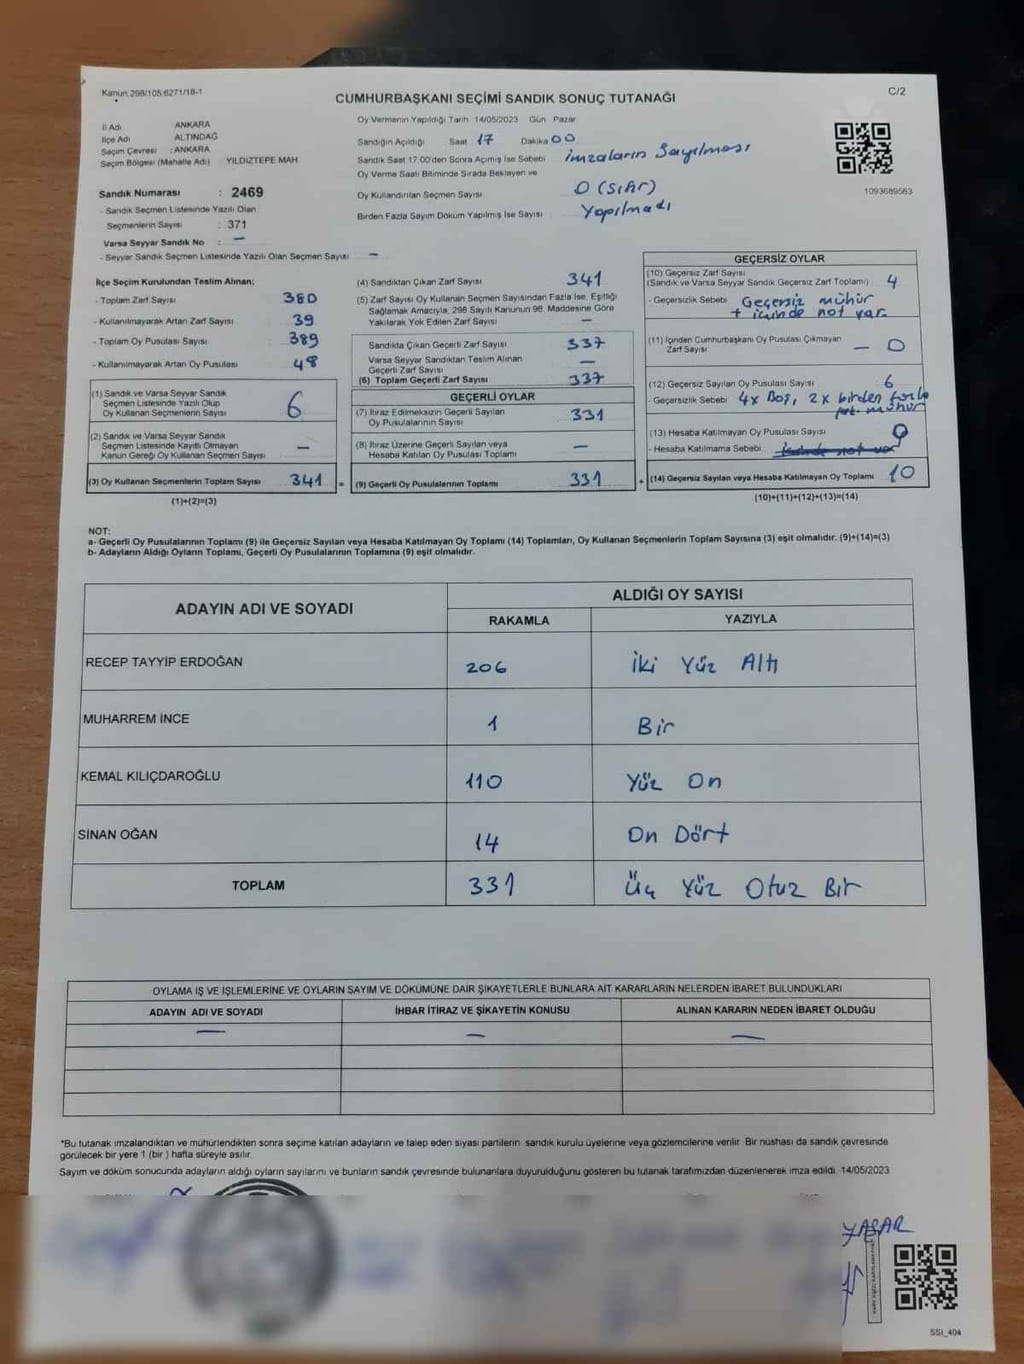 Kanun:298/105.6271/18-1
C/2
CUMHURBAŞKANI SEÇİMİ SANDIK SONUÇ TUTANAĞI
İl Adı ANKARA
İlçe Adı ALTINDAĞ
Seçim Çevresi : ANKARA
Seçim Bölgesi (Mahalle Adı) YILDIZTEPE MAH
Sandık Numarası : 2469
- Sandık Seçmen Listesinde Yazılı Olan
Seçmenlerin Sayısı : 371
Varsa Seyyar Sandık No : —
- Seyyar Sandık Seçmen Listesinde Yazılı Olan Seçmen Sayısı —
Oy Vermenin Yapıldığı Tarih 14/05/2023 Gün Pazar
Sandığın Açıldığı Saat 17 Dakika 00
Sandık Saat 17.00'den Sonra Açılmış İse Sebebi imzaların Sayılması
Oy Verme Saati Bitiminde Sırada Bekleyen ve
Oy Kullandırılan Seçmen Sayısı 0 (Sıfır)
Birden Fazla Sayım Döküm Yapılmış İse Sayısı Yapılmadı
1093689563
İlçe Seçim Kurulundan Teslim Alınan;
- Toplam Zarf Sayısı 380
- Kullanılmayarak Artan Zarf Sayısı 39
- Toplam Oy Pusulası Sayısı 389
- Kullanılmayarak Artan Oy Pusulası 48
(1) Sandık ve Varsa Seyyar Sandık
Seçmen Listesinde Yazılı Olup
Oy Kullanan Seçmenlerin Sayısı 6
(2) Sandık ve Varsa Seyyar Sandık
Seçmen Listesinde Kayıtlı Olmayan
Kanun Gereği Oy Kullanan Seçmen Sayısı —
(3) Oy Kullanan Seçmenlerin Toplam Sayısı 341 =
(1)+(2)=(3)
(4) Sandıktan Çıkan Zarf Sayısı 341
(5) Zarf Sayısı Oy Kullanan Seçmen Sayısından Fazla İse, Eşitliği
Sağlamak Amacıyla; 298 Sayılı Kanunun 98. Maddesine Göre
Yakılarak Yok Edilen Zarf Sayısı —
Sandıkta Çıkan Geçerli Zarf Sayısı 337
Varsa Seyyar Sandıktan Teslim Alınan
Geçerli Zarf Sayısı —
(6) Toplam Geçerli Zarf Sayısı 337
GEÇERLİ OYLAR
(7) İtiraz Edilmeksizin Geçerli Sayılan
Oy Pusulalarının Sayısı 331
(8) İtiraz Üzerine Geçerli Sayılan veya
Hesaba Katılan Oy Pusulası Toplamı —
(9) Geçerli Oy Pusulalarının Toplamı 331 +
GEÇERSİZ OYLAR
(10) Geçersiz Zarf Sayısı
(Sandık ve Varsa Seyyar Sandık Geçersiz Zarf Toplamı) 4
- Geçersizlik Sebebi Geçersiz mühür
+ içinde not var
(11) İçinden Cumhurbaşkanı Oy Pusulası Çıkmayan
Zarf Sayısı — 0
(12) Geçersiz Sayılan Oy Pusulası Sayısı 6
- Geçersizlik Sebebi 4x Boş, 2x birden fazla
mühür
(13) Hesaba Katılmayan Oy Pusulası Sayısı 0
- Hesaba Katılmama Sebebi
(14) Geçersiz Sayılan veya Hesaba Katılmayan Oy Toplamı 10
(10)+(11)+(12)+(13)=(14)
NOT:
a- Geçerli Oy Pusulalarının Toplamı (9) ile Geçersiz Sayılan veya Hesaba Katılmayan Oy Toplamı (14) Toplamları, Oy Kullanan Seçmenlerin Toplam Sayısına (3) eşit olmalıdır. (9)+(14)=(3)
b- Adayların Aldığı Oyların Toplamı, Geçerli Oy Pusulalarının Toplamına (9) eşit olmalıdır.
ADAYIN ADI VE SOYADI ALDIĞI OY SAYISI
RAKAMLA YAZIYLA
RECEP TAYYİP ERDOĞAN 206 İki Yüz Altı
MUHARREM İNCE 1 Bir
KEMAL KILIÇDAROĞLU 110 Yüz On
SİNAN OĞAN 14 On Dört
TOPLAM 331 Üç Yüz Otuz Bir
OYLAMA İŞ VE İŞLEMLERİNE VE OYLARIN SAYIM VE DÖKÜMÜNE DAİR ŞİKAYETLERLE BUNLARA AİT KARARLARIN NELERDEN İBARET BULUNDUKLARI
ADAYIN ADI VE SOYADI İHBAR İTİRAZ VE ŞİKAYETİN KONUSU ALINAN KARARIN NEDEN İBARET OLDUĞU
— — —
*Bu tutanak imzalandıktan ve mühürlendikten sonra seçime katılan adayların ve talep eden siyasi partilerin sandık kurulu üyelerine veya gözlemcilerine verilir. Bir nüshası da sandık çevresinde
görülecek bir yere 1 (bir ) hafta süreyle asılır.
Sayım ve döküm sonucunda adayların aldığı oyların sayılarını ve bunların sandık çevresinde bulunanlara duyurulduğunu gösteren bu tutanak tarafımızdan düzenlenerek imza edildi. 14/05/2023
YAŞAR
SSI_404